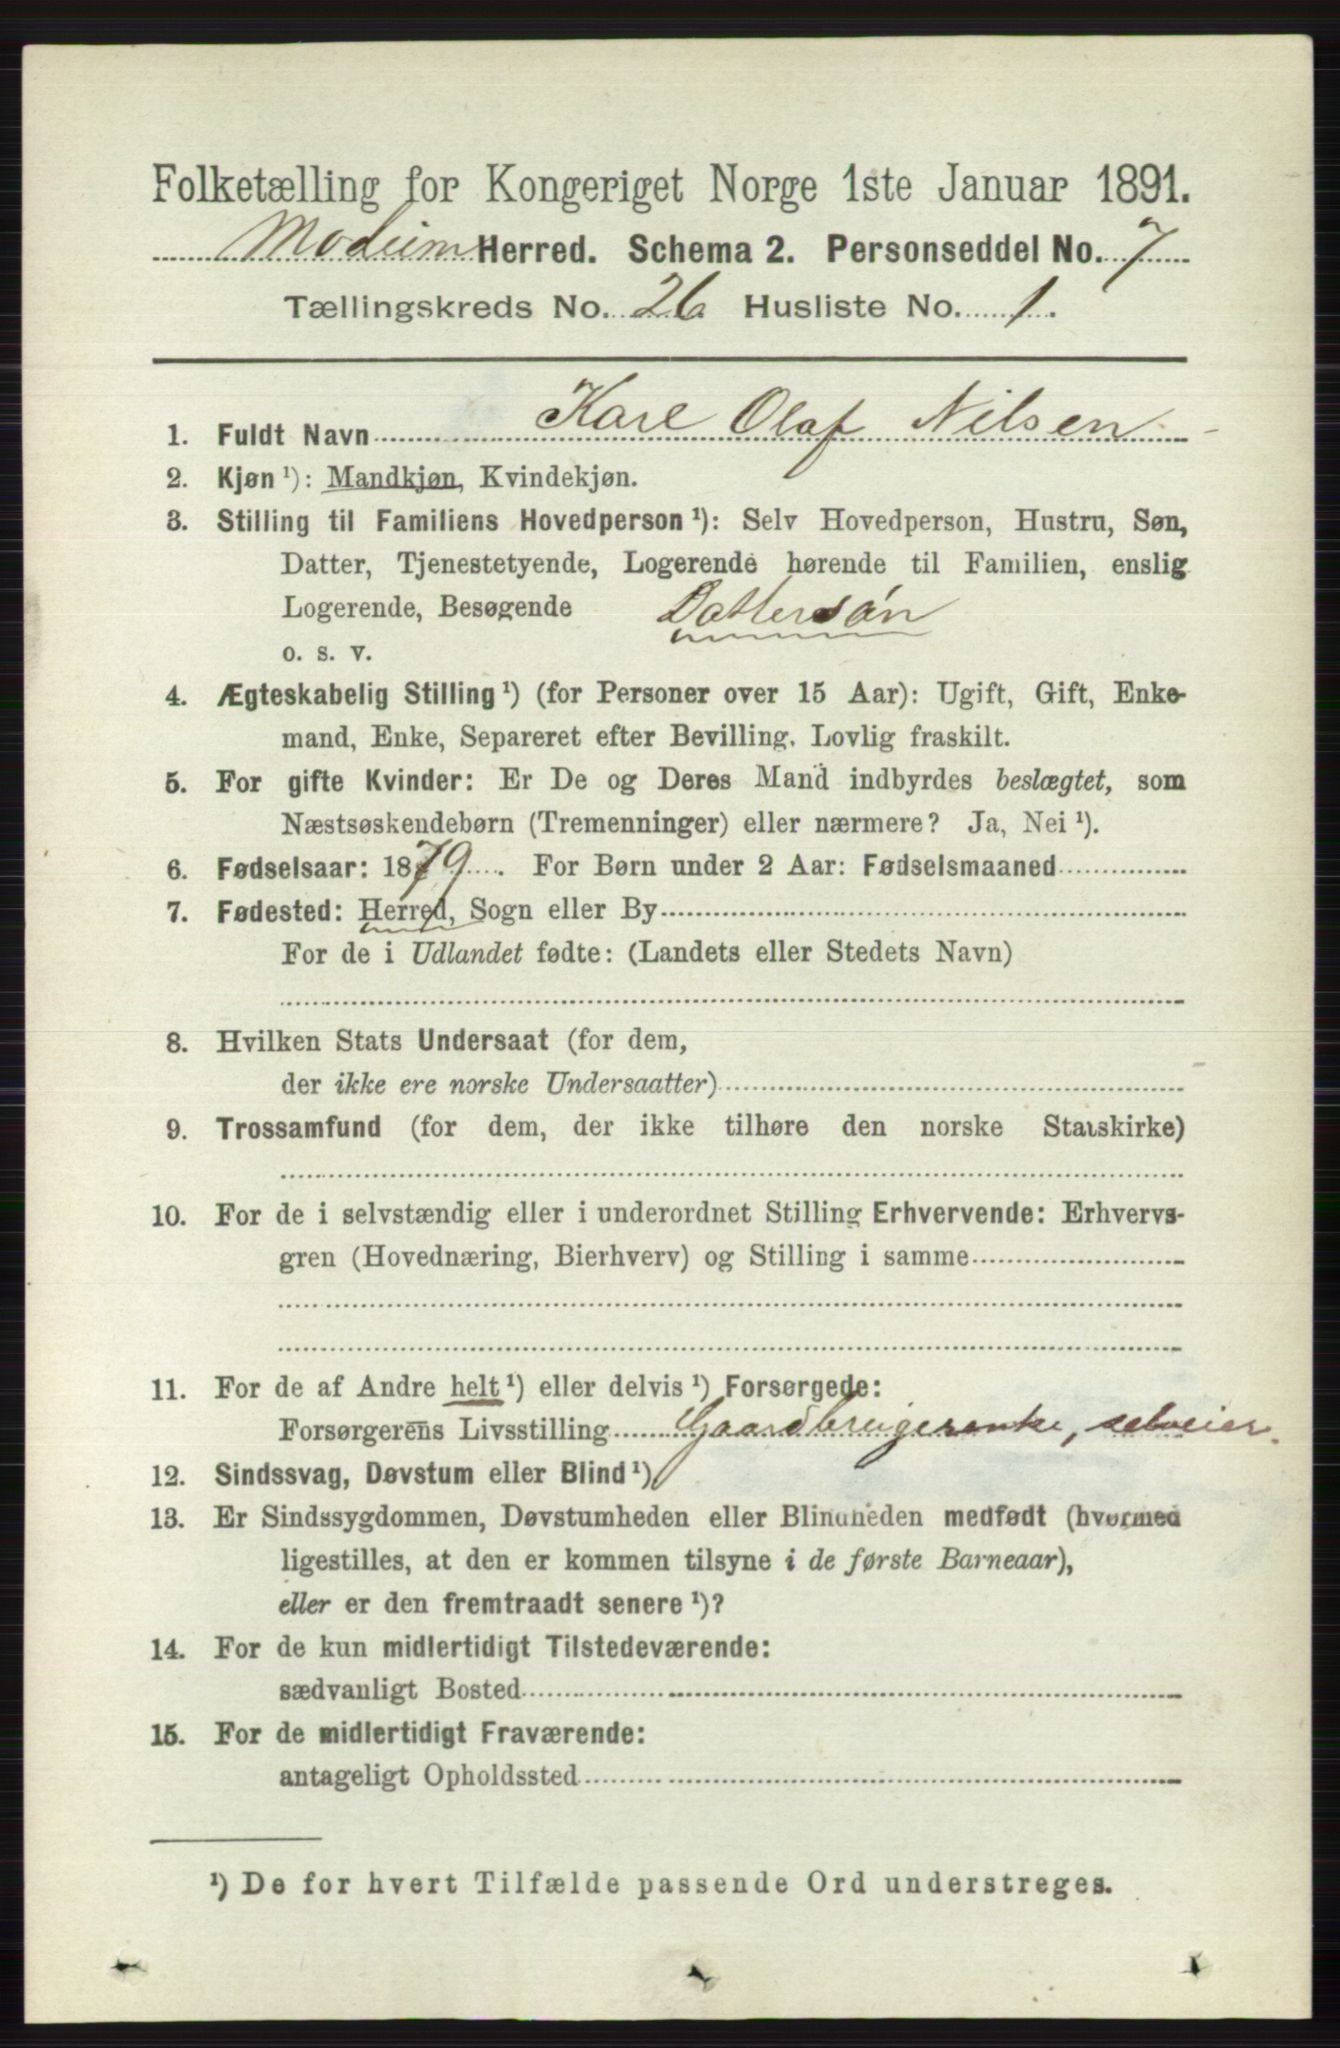 Folketælling for Kongeriget Norge 1ste Januar 1891.
Modum Herred. Schema 2. Personseddel No. 7
Tællingskreds No. 26 Husliste No. 1.
1. Fuldt Navn Karl Olaf Nilsen
2. Kjøn ¹): Mandkjøn, Kvindekjøn.
3. Stilling til Familiens Hovedperson ¹): Selv Hovedperson, Hustru, Søn,
Datter, Tjenestetyende, Logerende hørende til Familien, enslig
Logerende, Besøgende Dattersøn
o. s. v.
4. Ægteskabelig Stilling ¹) (for Personer over 15 Aar): Ugift, Gift, Enke-
mand, Enke, Separeret efter Bevilling. Lovlig fraskilt.
5. For gifte Kvinder: Er De og Deres Mand indbyrdes beslægtet, som
Næstsøskendebørn (Tremenninger) eller nærmere? Ja, Nei ¹).
6. Fødselsaar: 1879. For Børn under 2 Aar: Fødselsmaaned
7. Fødested: Herred, Sogn eller By
For de i Udlandet fødte: (Landets eller Stedets Navn)
8. Hvilken Stats Undersaat (for dem,
der ikke ere norske Undersaatter)
9. Trossamfund (for dem, der ikke tilhøre den norske Statskirke)
10. For de i selvstændig eller i underordnet Stilling Erhvervende: Erhvervs-
gren (Hovednæring, Bierhverv) og Stilling i samme
11. For de af Andre helt ¹) eller delvis ¹) Forsørgede:
Forsørgerens Livsstilling Gaardbrugerenke, selveier.
12. Sindssvag, Døvstum eller Blind ¹),
13. Er Sindssygdommen, Døvstumheden eller Blindheden medfødt (hvormed
ligestilles, at den er kommen tilsyne i de første Barneaar),
eller er den fremtraadt senere ¹)?
14. For de kun midlertidigt Tilstedeværende:
sædvanligt Bosted
15. For de midlertidigt Fraværende:
antageligt Opholdssted
¹) De for hvert Tilfælde passende Ord understreges.